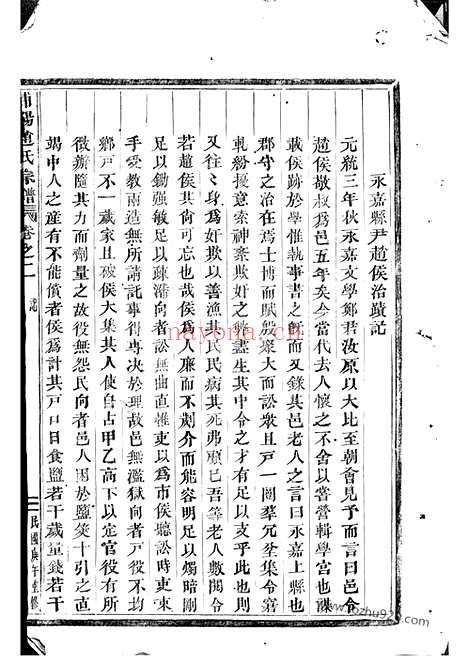 永嘉縣尹趙侯治蹟記
元統三年秋永嘉文學鄭君汝原以大比至朝會見予而言曰邑令
趙侯敬叔為邑五年矣今當代去人懷之不舍以嘗營輯學宮也謀
載侯跡於學惟執事書之旣而又錄其邑老人之言曰永嘉上縣也
郡守之治在焉士博而賦殷眾大而訟衆且戶一鬨羣兄全集令窮
軋紛擾意索神紊欺奸之 盡生其中令之才有足以支乎此也則
又往々身為奸欺以善漁 民民病其死弗顧已吾等老人數閱令
若趙侯其尙可忘也哉侯人廉而不劌介而能容明足以燭暗剛
足以鋤强敏足以疎滯向者訟無曲直惟吏以為市侯聽訟時吏束
手受教兩造無所請託事得專决於理故邑無濫獄向者戶役不均
鄉戶不一歲家且破侯大集其人使自占甲乙高下以定官役有所
徵辦隨其力而劑量之故役無怨民向者邑人困於鹽筴十引之直
竭中人之產有不能償者侯為計其戶口日食鹽若干歲量錢若干
浦陽趙氏宗譜
卷之二
記
民國庚午重修
nayona.cn
nayona.cn
zhuji923.com